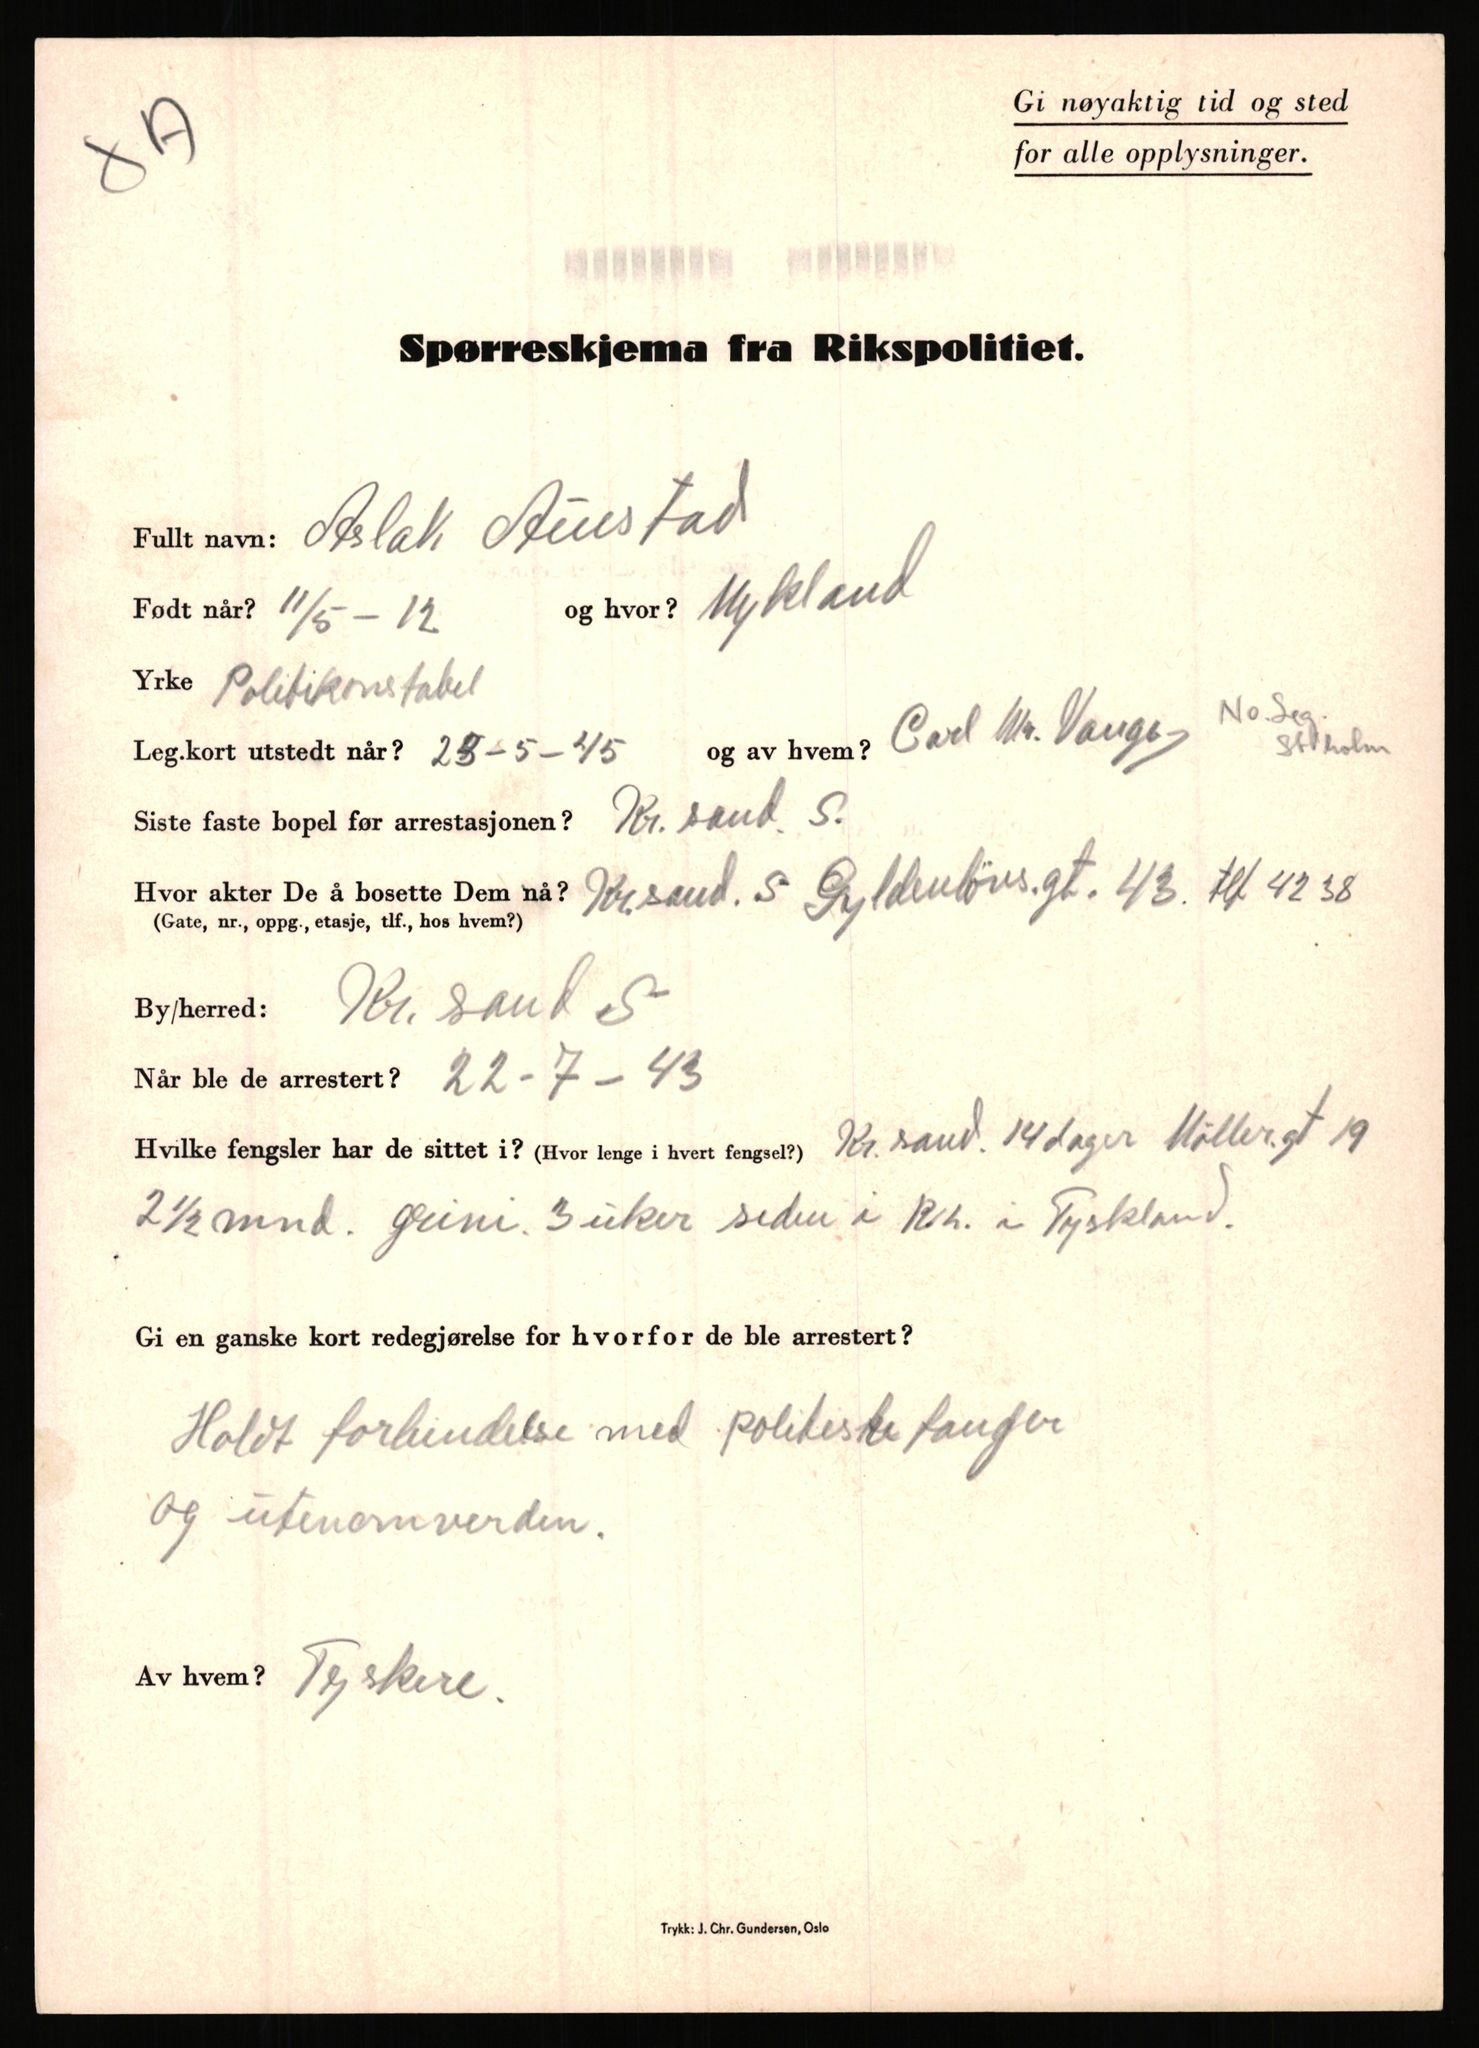 Gi nøyaktig tid og sted
for alle opplysninger.
Spørreskjema fra Rikspolitiet.
Fullt navn: Aslak Austad
Født når? 11/5 – 12 og hvor? Mykland
Yrke Politikonstabel
No. Leg.
St holm
Leg.kort utstedt når? 23-5-45 og av hvem? Carl Mr.
Siste faste bopel før arrestasjonen? Kr. sand. S.
Hvor akter De å bosette Dem nå? Kr.sand. S Gyldenløvs.gt. 43. tlf 42 38
(Gate, nr., oppg., etasje, tlf., hos hvem?)
By/herred: Kr. sand S
Når ble de arrestert? 22-7-43
Hvilke fengsler har de sittet i? (Hvor lenge i hvert fengsel?) Kr. sand. 14 dager Möller.gt 19
2 1/2 mnd. Grini. 3 uker siden i i Tyskland.
Gi en ganske kort redegjørelse for hvorfor de ble arrestert?
Holdt forbindelse med politiske fanger
og utenomverden.
Av hvem? Tyskere.
Trykk: J. Chr. Gundersen, Oslo